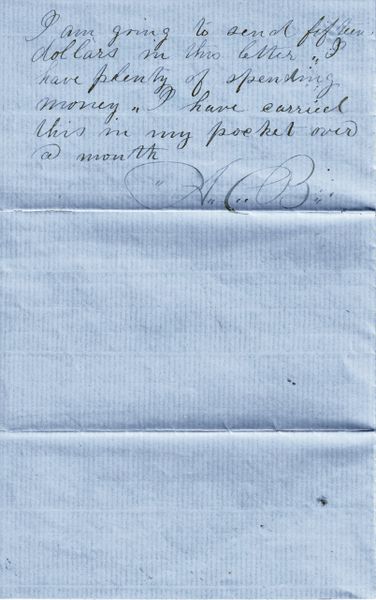 I am going to send fifteen
dollars in this letter „ I
have plenty of spending
money „ I have carried
this in my pocket over
a month
„ A„ C„ B„